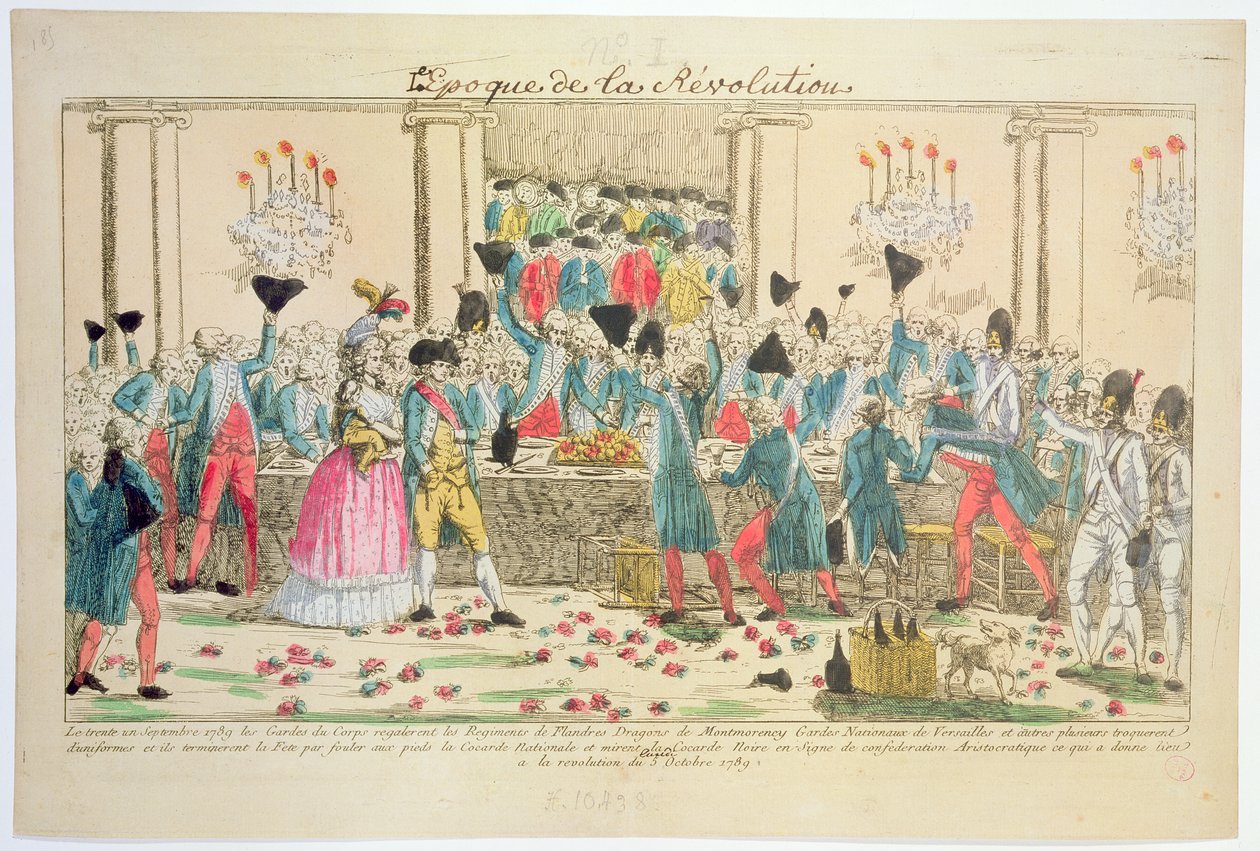 185
No I.
L'Epoque de la Révolution
Le trente un Septembre 1789 les Gardes du Corps regalerent les Regiments de Flandres Dragons de Montmorency Gardes Nationaux de Versailles et autres plusieurs troquerent
d'uniformes et ils terminerent la Fete par fouler aux pieds la Cocarde Nationale et mirent la Cocarde Noire en Signe de confederation Aristocratique ce qui a donne lieu
a la revolution du 5 Octobre 1789
H. 10,438